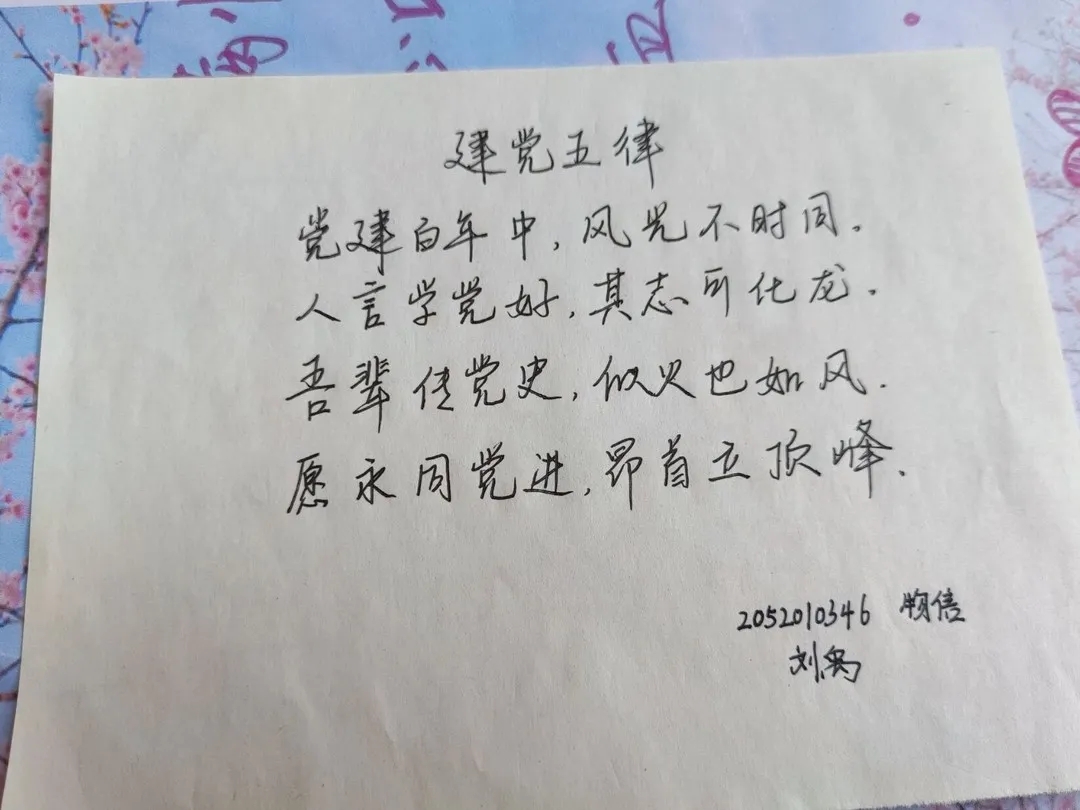 建党五律
党建百年中,风光不时同.
人言学党好,其志可化龙.
吾辈传党史,似火也如风.
愿永同党进,昂首立顶峰.
2052010346 物信
刘禹